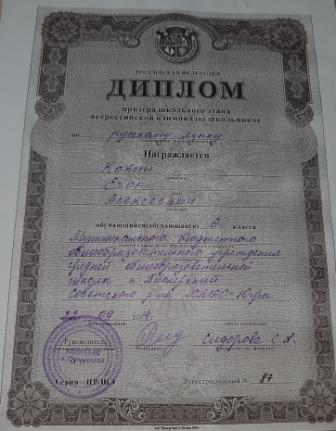 РОССИЙСКАЯ ФЕДЕРАЦИЯ
ДИПЛОМ
призера школьного этапа
всероссийской олимпиады школьников
по русскому языку
Награждается
Егор
Алексеевич
обучающийся(обучающаяся) 6 класса
Муниципального бюджетного
общеобразовательного учреждения
средней общеобразовательной
школы п.
Советского р-на ХМАО-Югры
22 09
Руководитель Сидорова С.А.
Серия Регистрационный № 87